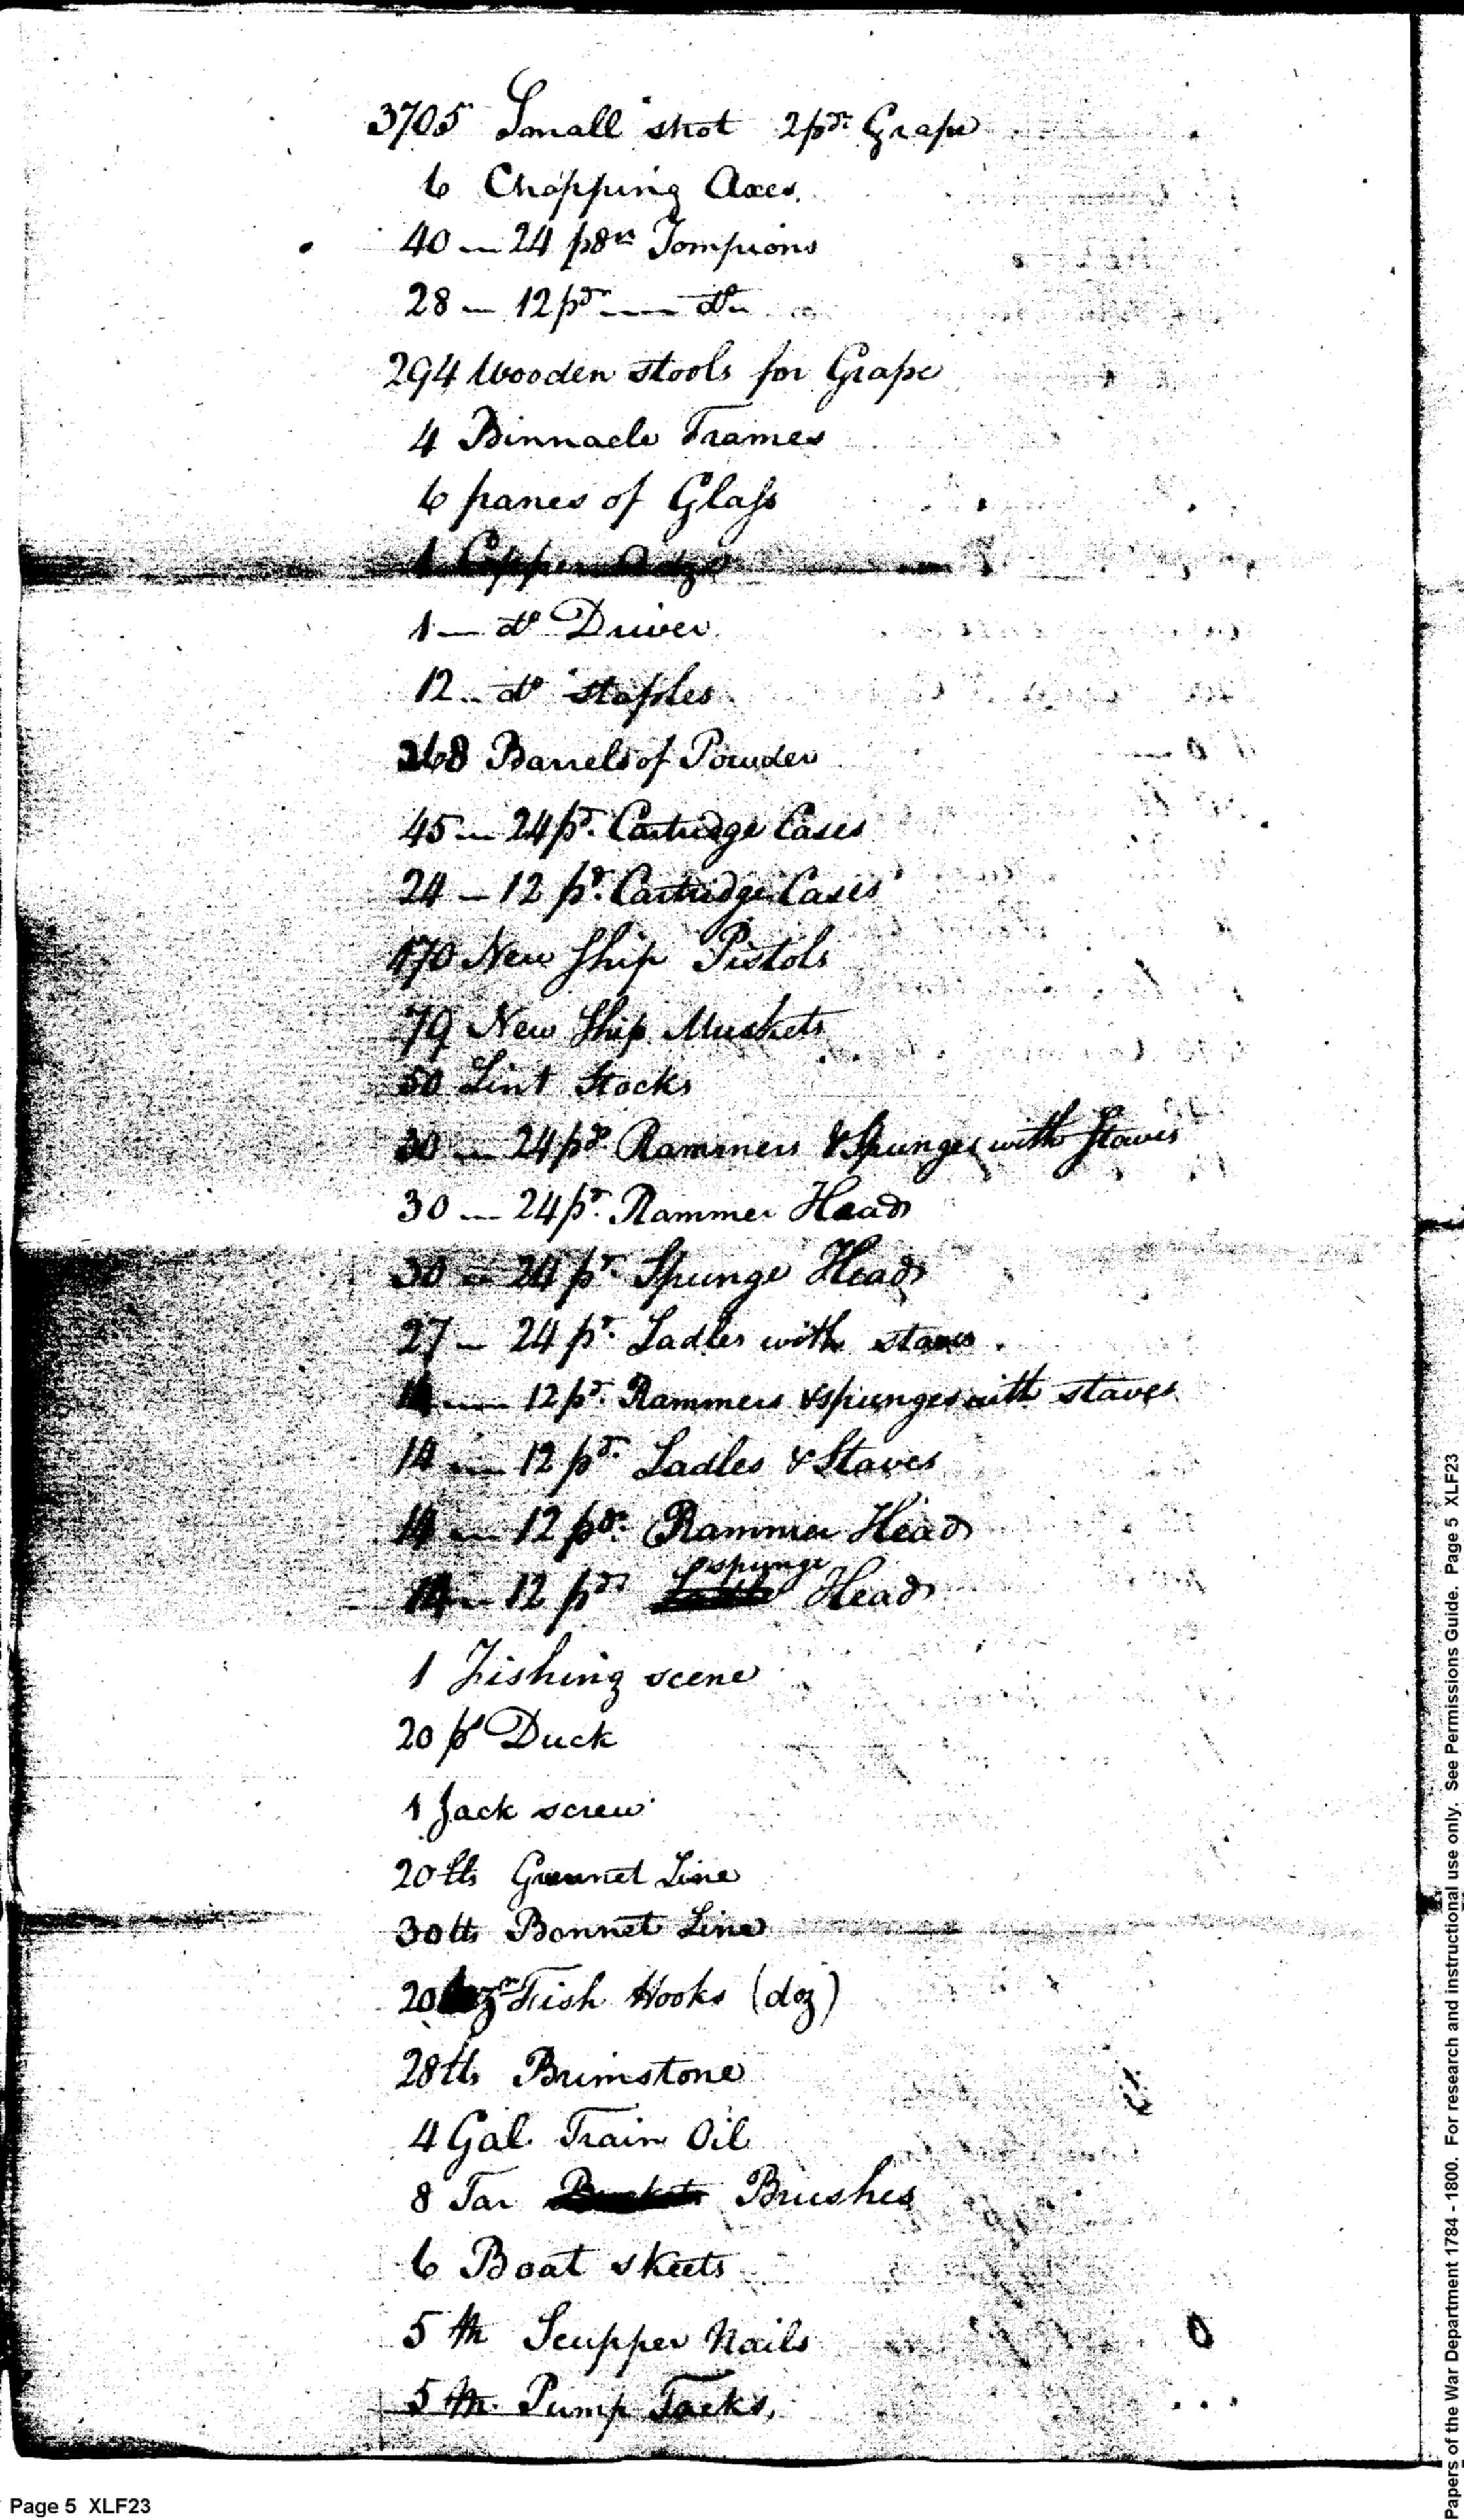 3705 Small shot 2pdr Grape
6 Chopping Axes.
40 — 24 pdrs Tompions
28 — 12 pdr — do
294 Wooden stools for Grape
4 Binnacle Frames
6 panes of Glass
1 Copper Adze
1 — do Driver
12 .. do staples
268 Barrels of Powder
45 — 24 pr. Cartridge Cases
24 — 12 pr. Cartridge Cases
170 New Ship Pistols
79 New Ship Muskets
50 Lint Stocks
30 — 24 pdr. Rammers & Spunges with Staves
30 — 24 pr. Rammer Heads
30 — 24 pr. Spunge Heads
27 — 24 pr. Ladles with staves.
14 — 12 pr. Rammers & spunges with staves
14 — 12 pdr. Ladles & Staves
14 — 12 pdr. Rammer Heads
14 — 12 pdr spunge Heads
1 Fishing scene
20 ps Duck
1 Jack screw
20 lbs Line
30 lbs Bonnet Line
20 Fish Hooks (doz)
28 lbs Brimstone
4 Gal. Train Oil
8 Tar Buckets Brushes
6 Boat skeets
5 m Scupper Nails
5 m. Pump Tacks,
Page 5 XLF23
Papers of the War Department 1784 - 1800. For research and instructional use only. See Permissions Guide. Page 5 XLF23